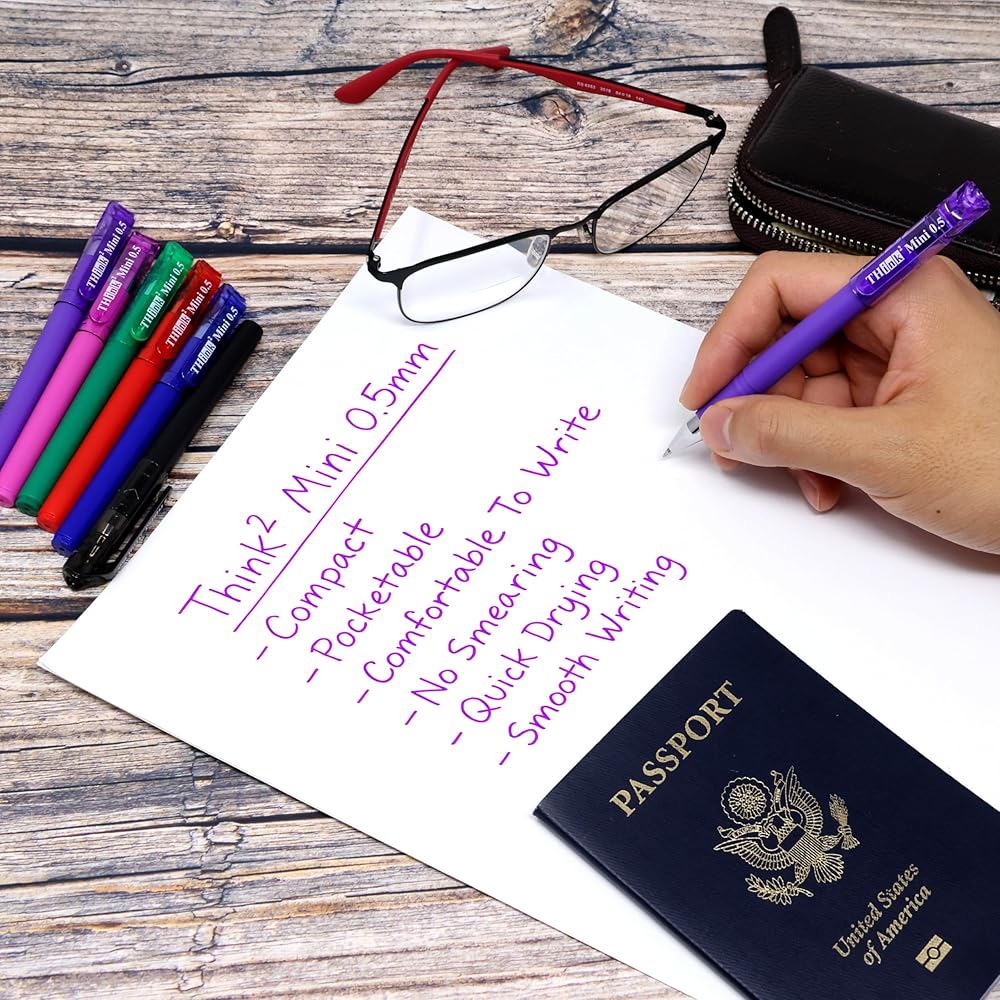 Think² Mini 0.5mm
- Compact
- Pocketable
- Comfortable To Write
- No Smearing
- Quick Drying
- Smooth Writing
THINK² Mini 0.5
THINK² Mini 0.5
THINK² Mini 0.5
THINK² Mini 0.5
THINK² Mini 0.5
THINK² Mini 0.5
PASSPORT
United States
of America